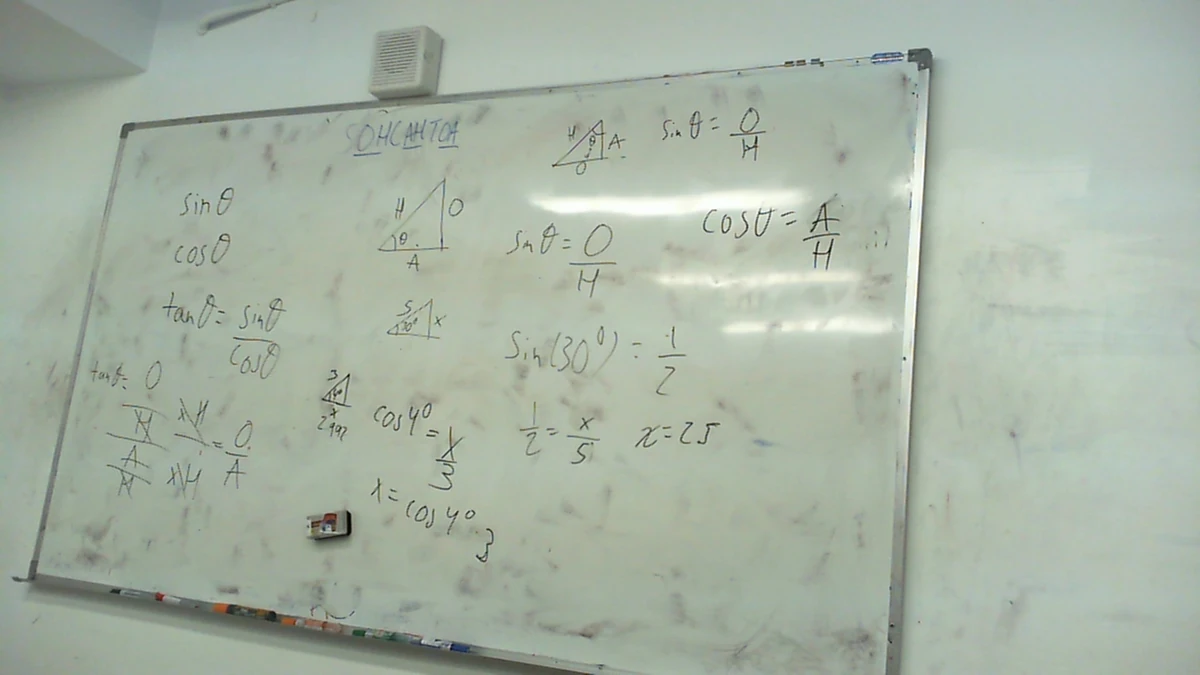 SOHCAHTOA
H
A
O
sin θ = O/H
sin θ
cos θ
H
O
θ
A
sin θ = O/H
cos θ = A/H
tan θ = sin θ/cos θ
5
30°
x
sin(30°) = 1/2
tan θ = O/H / A/H × H / × H = O/A
3
x
cos 4° = x/3
1/2 = x/5
x = 25
x = cos 4° · 3